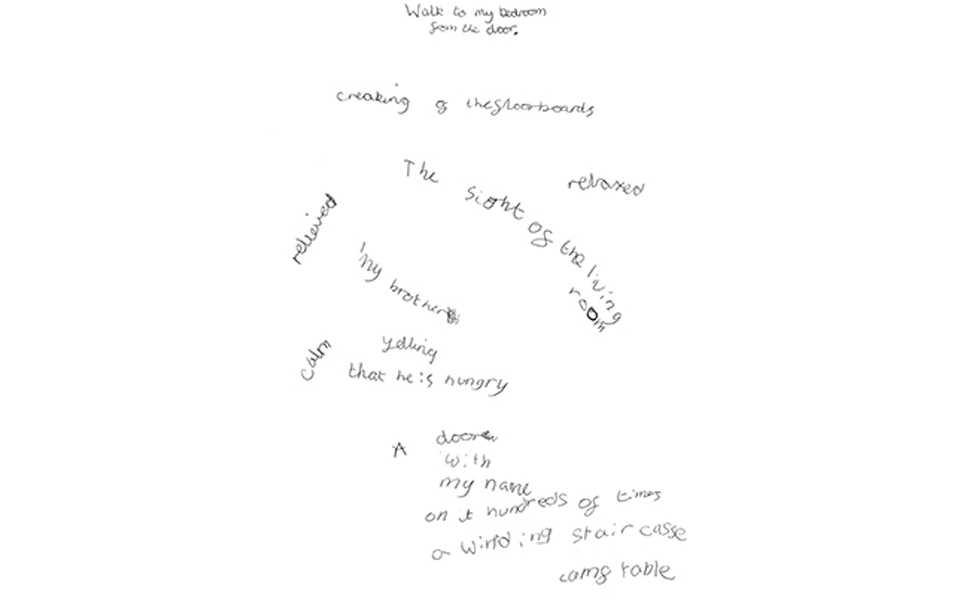 Walk to my bedroom
from the door.
creaking of the floorboards
The sight of the living room
relaxed
relieved
'my brother
yelling
that he is hungry
calm
A door
with
my name
on it hundreds of times
a winding stair casse
comf table